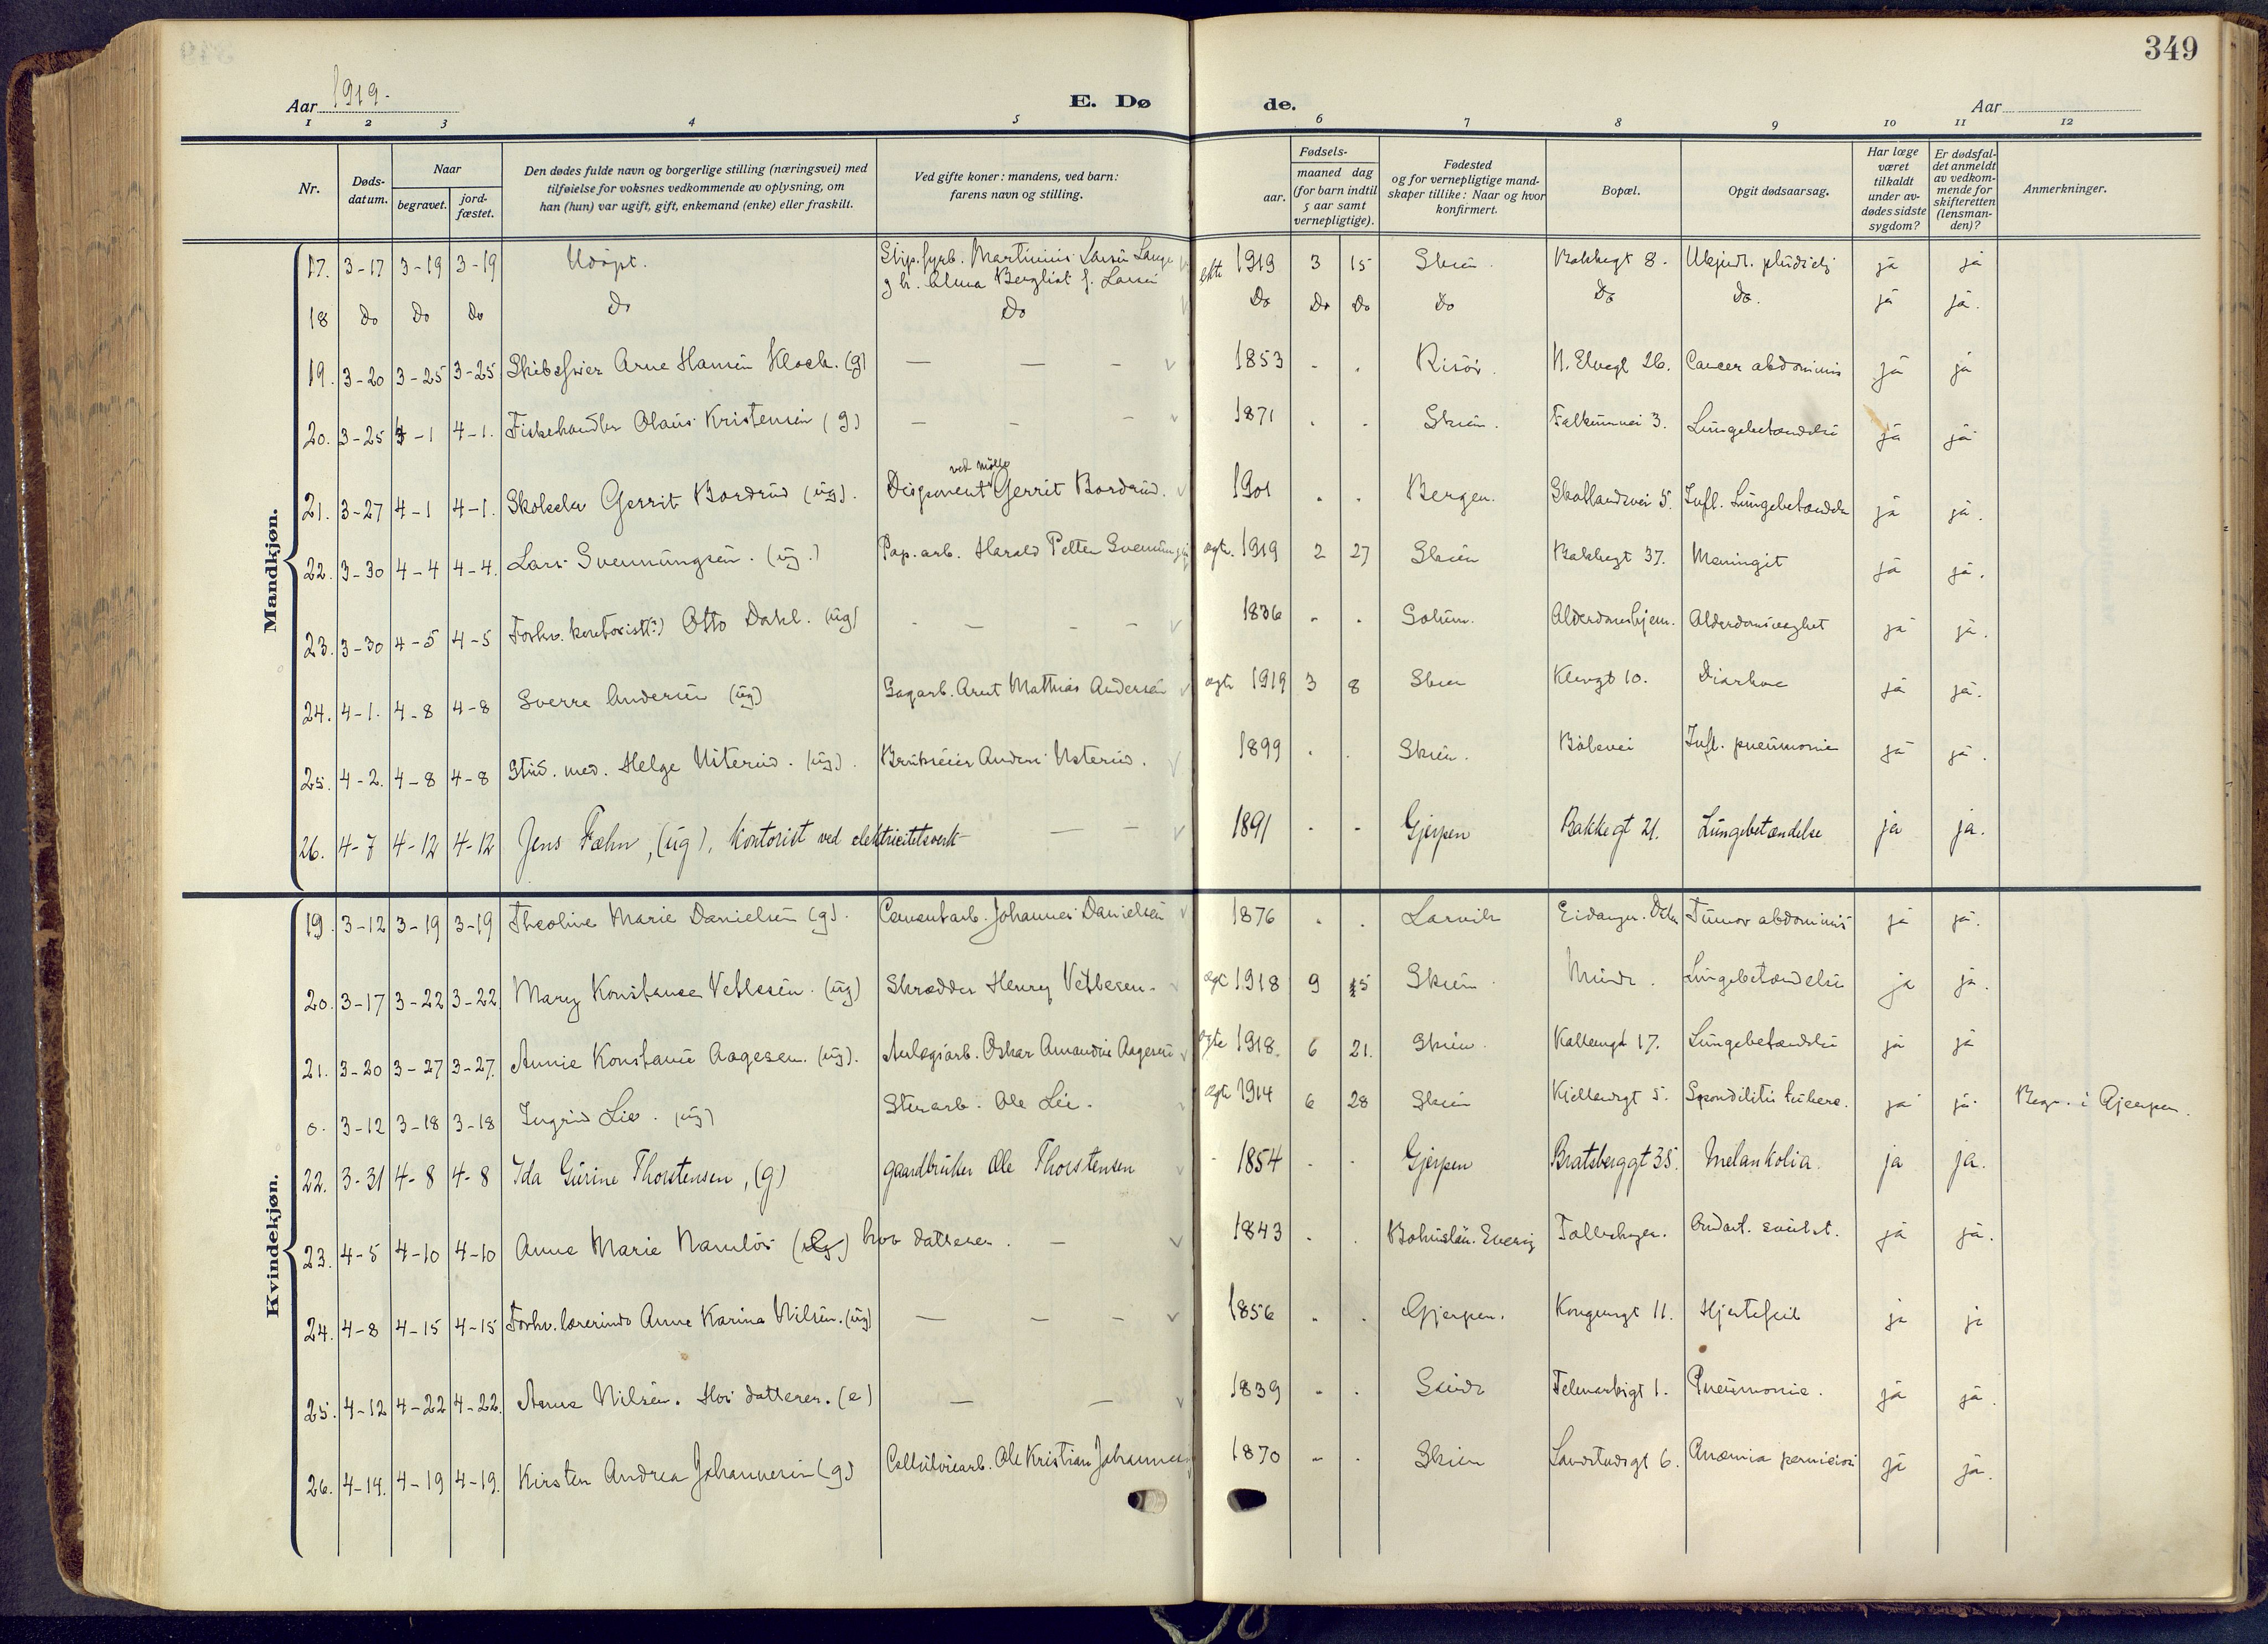 349
Aar 1919.
E. Dø de.
Aar
1 2 3 4 5 6 7 8 9 10 11 12
Nr.
Døds-
datum.
Naar
begravet.
jord-
fæstet.
Den dødes fulde navn og borgerlige stilling (næringsvei) med
tilføielse for voksnes vedkommende av oplysning, om
han (hun) var ugift, gift, enkemand (enke) eller fraskilt.
Ved gifte koner: mandens, ved barn:
farens navn og stilling.
Fødsels-
aar.
maaned dag
(for barn indtil
5 aar samt
vernepligtige).
Fødested
og for vernepligtige mand-
skaper tillike: Naar og hvor
konfirmert.
Bopæl.
Opgit dødsaarsag.
Har læge
været
tilkaldt
under av-
dødes sidste
sygdom?
Er dødsfal-
det anmeldt
av vedkom-
mende for
skifteretten
(lensman-
den)?
Anmerkninger.
Mandkjøn.
17. 3-17 3-19 3-19 Udøpt. Martinius Larsen Lange ekte 1919 3 15 Skien. Bakkegt 8. ja ja
g h. Alma Bergliot f. Larsen
18 Do Do Do Do Do Do Do Do Do Do Do. ja ja.
19. 3-20 3-25 3-25 Arne Hansen Kloch. (g) — — - 1853 - . Risør. N. Elvegt 26. Cancer abdominis ja ja
20. 3-25 4-1 4-1. Fiskehandler Olaus Kristensen (g) — - - 1871 . . Skien. Falkumvei 3. Lungebetændelse ja ja
ved mølle
21. 3-27 4-1 4-1. Skoleelev Gerrit Bordrud (ug). Disponent Gerrit Bordrud. 1901 . . Bergen. Skotlandsvei 5. Infl. Lungebetændelse ja ja.
22. 3-30 4-4 4-4. Lars Svennungsen. (ug.) Pap.arb. Harald Petter Svennungsen ægte. 1919 2 27 Skien Bakkegt 37. Meningit ja ja.
23. 3-30 4-5 4-5 Forhv. kontorist(?) Otto Dahl. (ug) - - - - 1836 - . Solum. Alderdomshjem. Alderdomssvaghet ja ja.
24. 4-1. 4-8 4-8 Sverre Andersen (ug) Sagarb. Arnt Mathias Andersen ægte 1919 3 8 Skien Klevgt 10. Diarhoe ja ja.
25. 4-2. 4-8 4-8 Stud. med. Helge Usterud. (ug). Brukseier Anders Usterud. 1899 . . Skien. Bølevei Infl. pneumonie ja ja.
26. 4-7 4-12 4-12 Jens Fæhn, (ug), kontorist ved elektricitetsverk — - 1891 - - Gjerpen Bakkegt 21. Lungebetændelse ja ja.
Kvindekjøn.
19. 3-12 3-19 3-19 Theoline Marie Danielsen (g). Cementarb. Johannes Danielsen 1876 . . Larvik Eidanger. Tumor abdominis ja ja.
20. 3-17 3-22 3-22 Mary Konstance Vetlesen. (ug) Skrædder Henry Vetlesen. ægte 1918 9 15 Skien. Lungebetændelse ja ja.
21. 3-20 3-27 3-27. Annie Konstanse Aagesen. (ug). Anlegsarb. Oskar Amandus Aagesen ægte 1918. 6 21. Skien. 17. Lungebetændelse ja ja
0. 3-12 3-18 3-18 Ingrid Lie. (ug) Stenarb. Ole Lie. ægte 1914 6 28 Skien Kjellemgt 5. Spondilitis tuberc. ja ja. Begr. i Gjerpen.
22. 3-31 4-8 4-8 Ida Gurine Thorstensen, (g) gaardbruker Ole Thorstensen - 1854 - - Gjerpen Bratsberggt 35. Melankolia. ja ja.
23. 4-5 4-10 4-10 Anne Marie Navnløs () hos datteren. — 1843 . . Bohuslän. Sverig Follehagen. ja ja.
24. 4-8 4-15 4-15 Forhv. lærerinde Anne Karina Nilsen. (ug) — — - 1856 . . Gjerpen. Kongensgt 11. Hjertefeil ja ja
25. 4-12 4-22 4-22. Anna Nilsen. Hos datteren. (e) — — 1839 . . Telemarksgt 1. Pneumonie. ja ja.
26. 4-14. 4-19 4-19. Kirsten Andrea Johannesen (g) Cellulosearb. Ole Kristian Johannesen 1870 - . Skien Landstadsgt 6. Anæmia perniciosa ja ja.